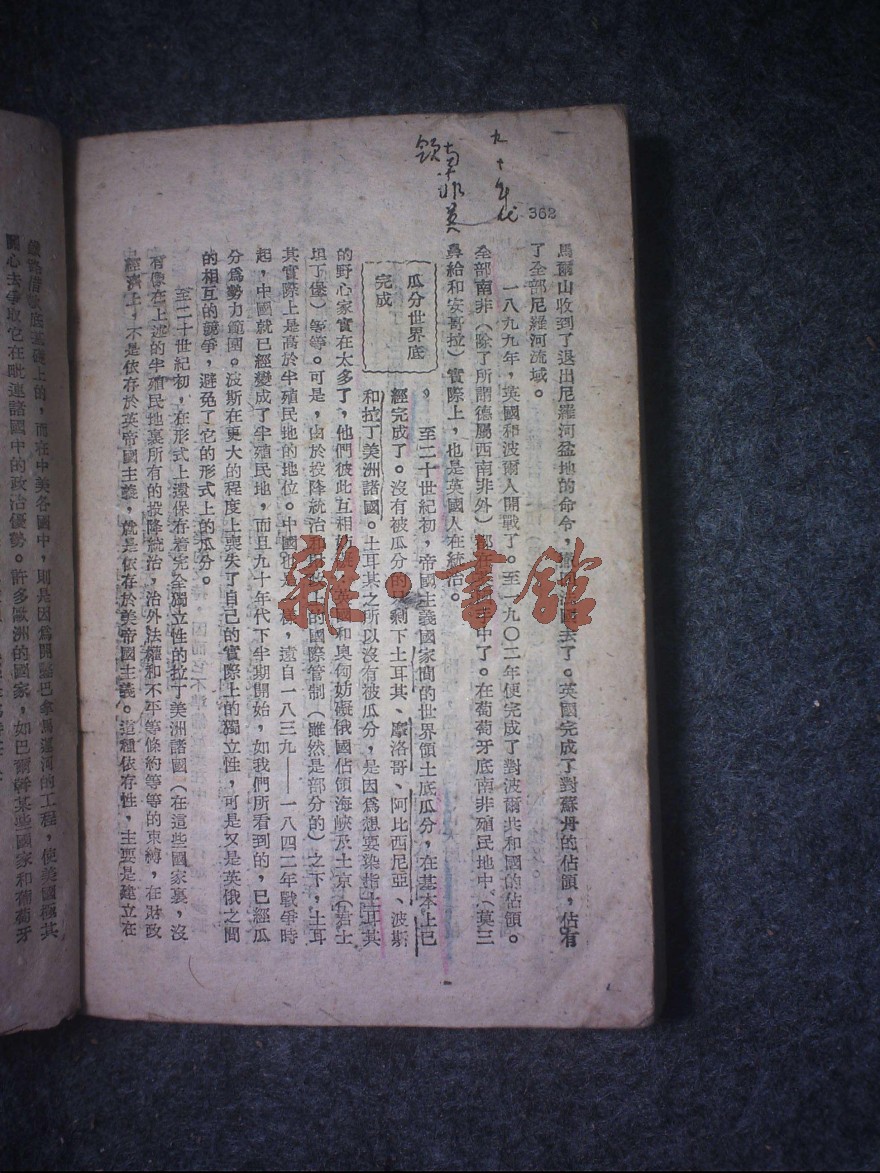 362
九十年代
馬爾山收到了退出尼羅河盆地的命令，國去了。英國完成了對蘇丹的佔領，佔有
了全部尼羅河流域。
一八九九年，英國和波爾人開戰了。至一九〇二年便完成了對波爾共和國的佔領。
全部南非（除了所謂德屬西南非外）都在中了。在葡萄牙底南非殖民地中（莫三
鼻給和安哥拉）實際上，也是英國人在統治。
瓜分世界底
完成
，至二十世紀初，帝國主義國家間的世界領土底瓜分，在基本上已
經完成了。沒有被瓜分的只剩下土耳其、摩洛哥、阿比西尼亞、波斯
和拉丁美洲諸國。土耳其之所以沒有被瓜分，是因爲想要染指土耳其
的野心家實在太多了，他們彼此互相英國和奧匈妨礙俄國佔領海峽及土京（君士
坦丁堡）等等。可是，由於投降統治和財政上的國際管制（雖然是部分的）之下，土耳
其實際上是高於半殖民地的地位。中國也一樣，遠自一八三九——一八四二年戰爭時
起，中國就已經變成了半殖民地，而且九十年代下半期開始，如我們所看到的，已經瓜
分爲勢力範圍。波斯在更大的程度上喪失了自己的實際上的獨立性，可是又是英俄之間
的相互的競爭，避免了它的形式上的瓜分。
至二十世紀初，在形式上還保存着完全獨立性的拉丁美洲諸國（在這些國家裏，沒
有像在上述的半殖民地裏所有的投降統治，治外法權和不平等條約等等的束縛，在財政
經濟上，不是依存於英帝國主義，就是依存於美帝國主義。這種依存性，主要是建立在
上的，而在中美各國中，則是因爲開鑿巴拿馬運河的工程，使美國極其
關心去爭取它在毗連諸國中的政治優勢。許多歐洲的國家，如巴爾幹某些國家和葡萄牙
雜·書館